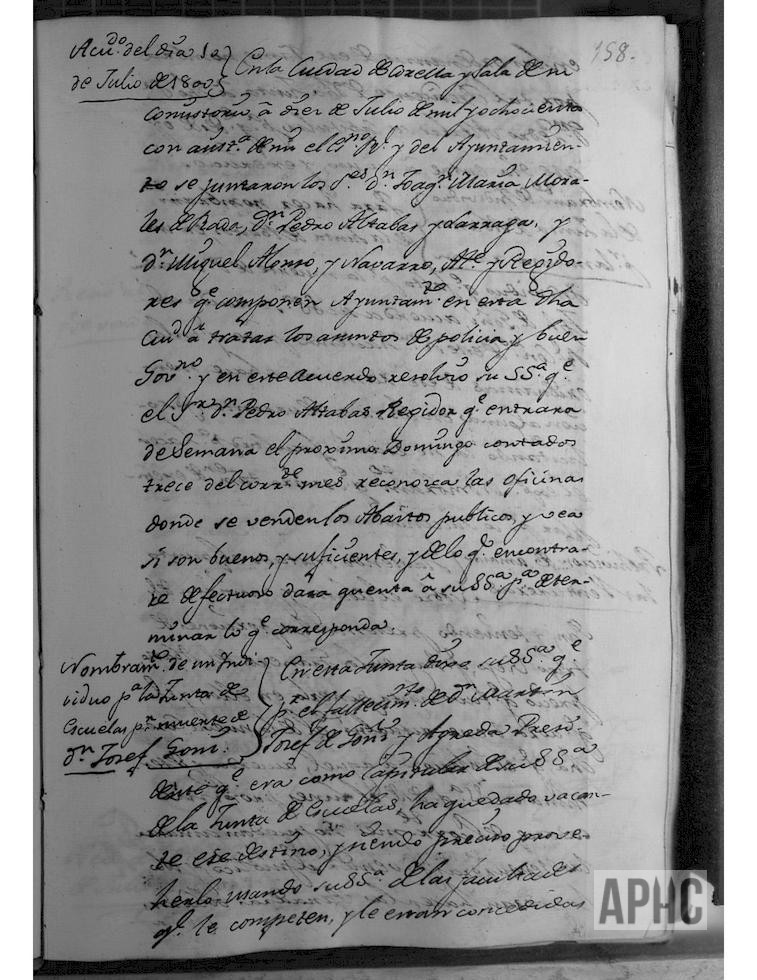 158.
Acu.do del dia 10
de Julio de 1800
En la Ciudad de Corella y sala de su
Consistorio, â diez de Julio de mil y ochocientos
con asist.a de mi el Ess.no R.l y del Ayuntamien-
to se juntaron los S.res d.n Joaq.n Maria Mora-
les de Rada, D.n Pedro Altabas y Larraga, y
d.n Miguel Alonso, y Navarro, Al.e y Regido-
res q.e componen Ayuntam.to en esta dha
Ciu.d a tratar los asuntos de policia y buen
Gov.no y en este acuerdo resolvio su SS.a q.e
el S.r d.n Pedro Altabas Regidor q.e entrara
de Semana el proximo Domingo contados
trece del corr.te mes reconozca las oficinas
donde se venden los Abastos publicos, y vea
si son buenos, y suficientes, y de lo q.e encontra-
re defectuoso dara quenta â su SS.a p.a deter-
minar lo q.e corresponda.
Nombram.to de un Indi-
viduo p.a la Junta de
Escuelas p.r muerte de
d.n Josef Goñi.
En esta Junta dixo su SS.a q.e
p.r el fallecim.to de d.n Martin
Josef de Goñi y Agreda Presi-
dente q.e era como Capitular de su SS.a
de la Junta de Escuelas, ha quedado vacan-
te ese destino, y siendo preciso prove-
herlo usando su SS.a de las facultades
q.e le competen, y le estan concedidas
APHC